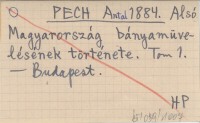 PECH Antal 1884. Alsó
Magyarország bányamüve-
lésének története. Tom 1.
— Budapest.
HP